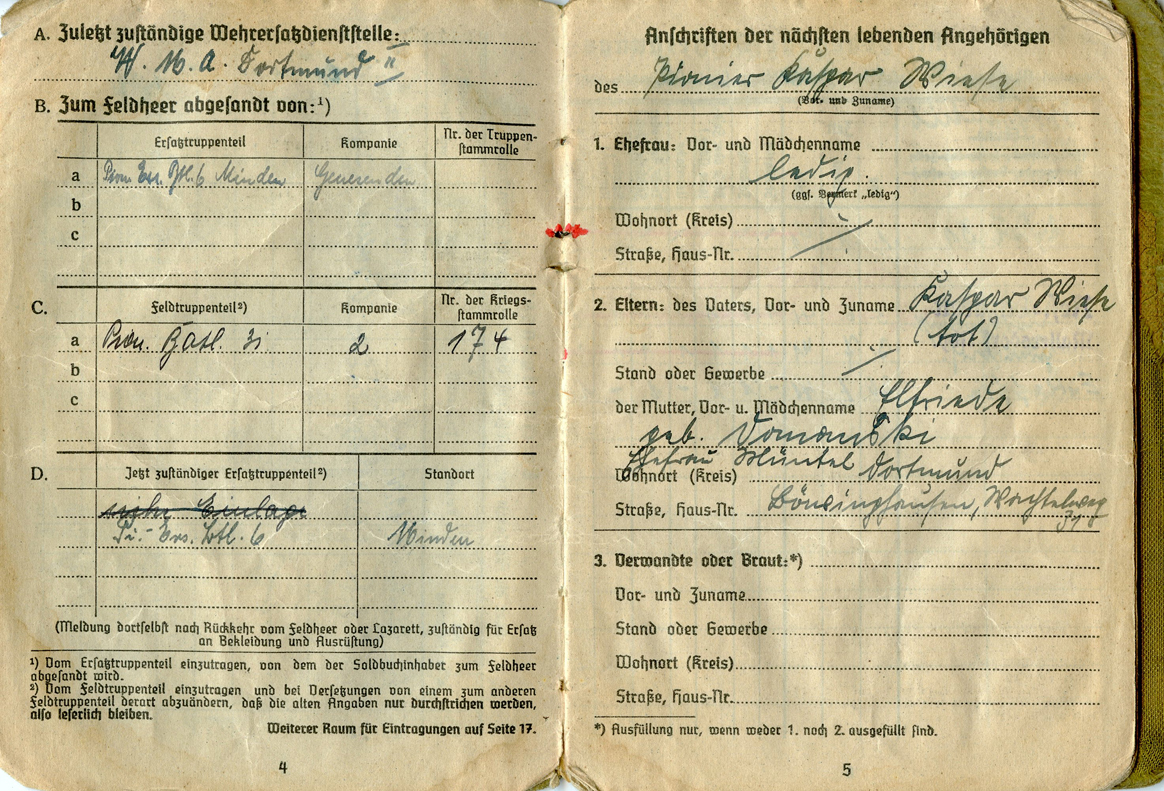 A. Zuletzt zuständige Wehrersatzdienststelle:
W. M. A. Dortmund II
B. Zum Feldheer abgesandt von:¹)
Ersatztruppenteil Kompanie Nr. der Truppen-
stammrolle
a Pion. Ers. Btl. 6 Minden Genesenden
b
c
C. Feldtruppenteil²) Kompanie Nr. der Kriegs-
stammrolle
a Pion. Batl. 31 2 174
b
c
D. Jetzt zuständiger Ersatztruppenteil²) Standort
siehe Einlage
Pi.- Ers. Btl. 6 Minden
(Meldung dortselbst nach Rückkehr vom Feldheer oder Lazarett, zuständig für Ersatz
an Bekleidung und Ausrüstung)
¹) Vom Ersatztruppenteil einzutragen, von dem der Soldbuchinhaber zum Feldheer
abgesandt wird.
²) Vom Feldtruppenteil einzutragen und bei Versetzungen von einem zum anderen
Feldtruppenteil derart abzuändern, daß die alten Angaben nur durchstrichen werden,
also leserlich bleiben.
Weiterer Raum für Eintragungen auf Seite 17.
4
Anschriften der nächsten lebenden Angehörigen
des Pionier Kaspar Wiese
(Vor- und Zuname)
1. Ehefrau: Vor- und Mädchenname
ledig.
(ggf. Vermerk „ledig“)
Wohnort (Kreis)
Straße, Haus-Nr.
2. Eltern: des Vaters, Vor- und Zuname Kaspar Wiese
(tot)
Stand oder Gewerbe
der Mutter, Vor- u. Mädchenname Elfriede
geb. Domanski
Ehefrau Müntel
Wohnort (Kreis) Dortmund
Straße, Haus-Nr. Bövinghausen, Wachtelweg
3. Verwandte oder Braut:*)
Vor- und Zuname
Stand oder Gewerbe
Wohnort (Kreis)
Straße, Haus-Nr.
*) Ausfüllung nur, wenn weder 1. noch 2. ausgefüllt sind.
5